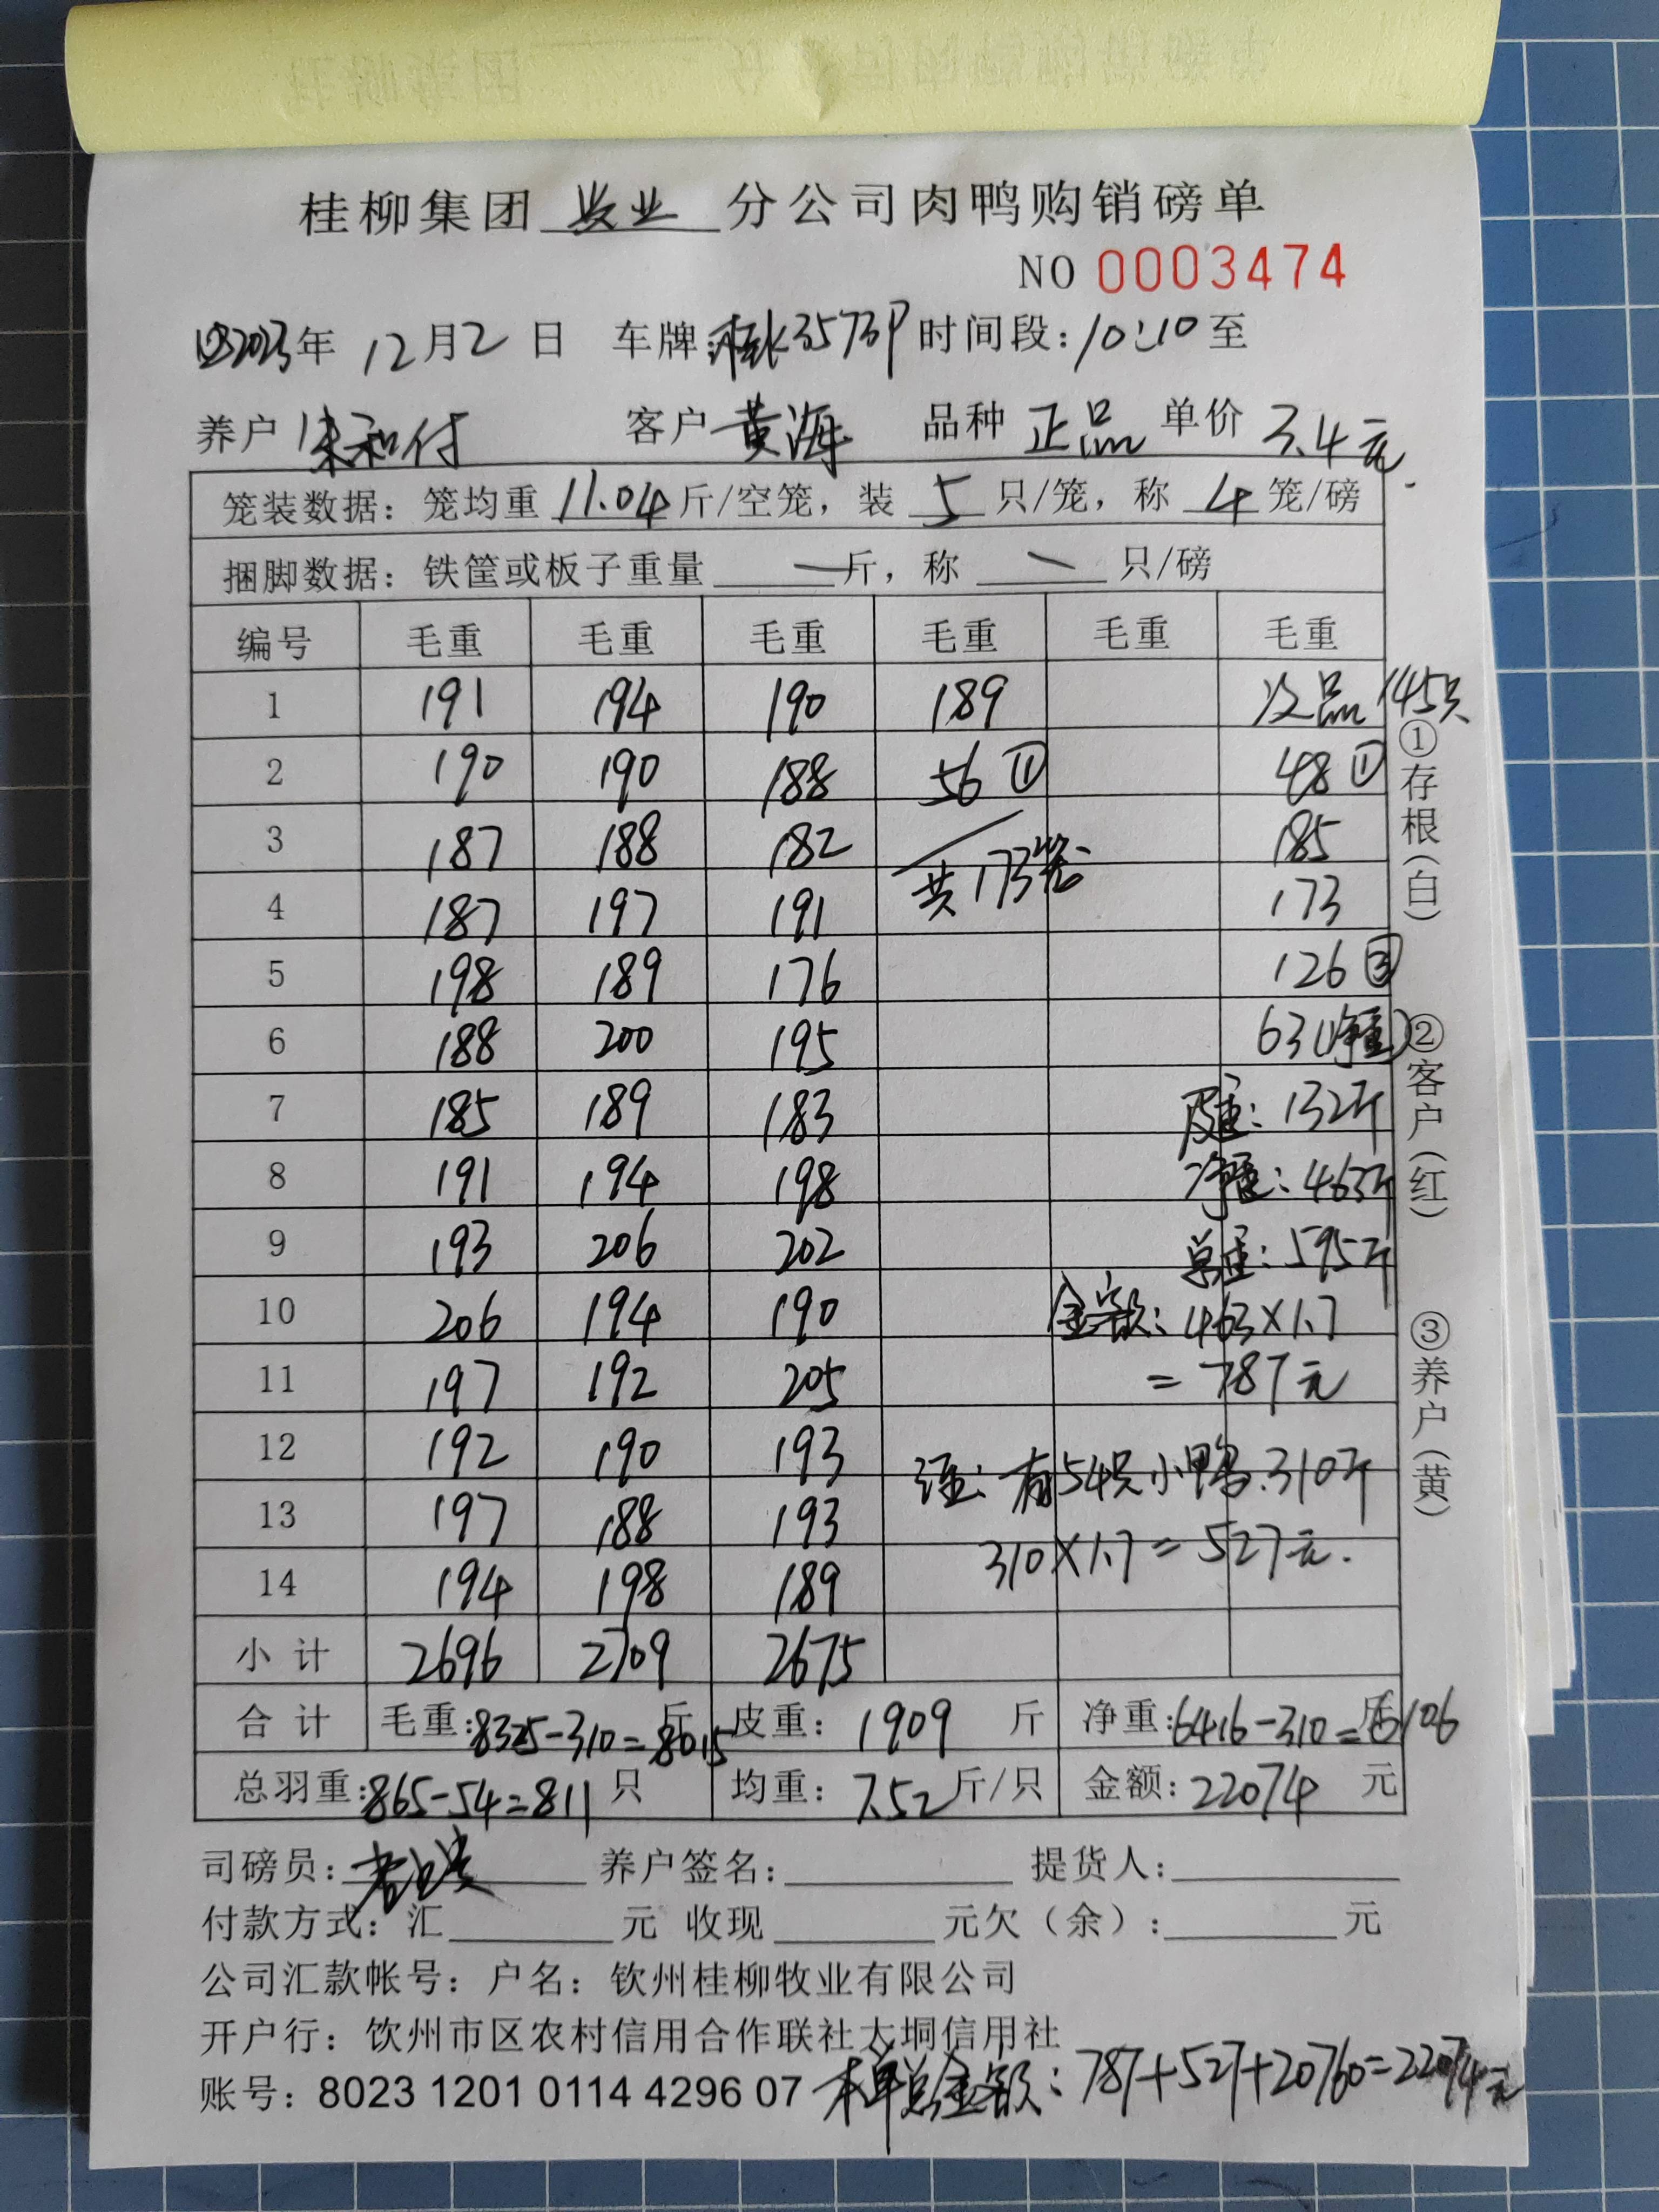 桂柳集团 牧业 分公司肉鸭购销磅单
NO 0003474
2023年 12月2日 车牌: 3573P 时间段:10:10至
养户 朱和付 客户 黄海 品种 正品 单价 3.4元.
笼装数据: 笼均重 11.04 斤/空笼, 装 5 只/笼, 称 4 笼/磅
捆脚数据: 铁筐或板子重量 — 斤, 称 — 只/磅
编号 毛重 毛重 毛重 毛重 毛重 毛重
1 191 194 190 189 次品 145只
2 190 190 188 56① 48①
3 187 188 182 185
共173笼
4 187 197 191 173
5 198 189 176 126③
6 188 200 195 63(净重)
7 185 189 183 皮重: 132斤
8 191 194 198 净重: 463斤
9 193 206 202 总重: 595斤
10 206 194 190 金额: 463×1.7
11 197 192 205 =787元
12 192 190 193 注: 有54只小鸭.310斤
13 197 188 193 310×1.7=527元.
14 194 198 189
小计 2696 2709 2675
合计 毛重:8325-310=8015斤 皮重: 1909 斤 净重:6416-310=6106斤
总羽重:865-54=811 只 均重: 7.52 斤/只 金额: 22074 元
司磅员: 养户签名: 提货人:
付款方式: 汇 元 收现 元欠(余): 元
公司汇款帐号: 户名: 钦州桂柳牧业有限公司
开户行: 饮州市区农村信用合作联社大垌信用社
账号: 8023 1201 0114 4296 07 本单总金额: 787+527+20760=22074元
①存根(白) ②客户(红) ③养户(黄)